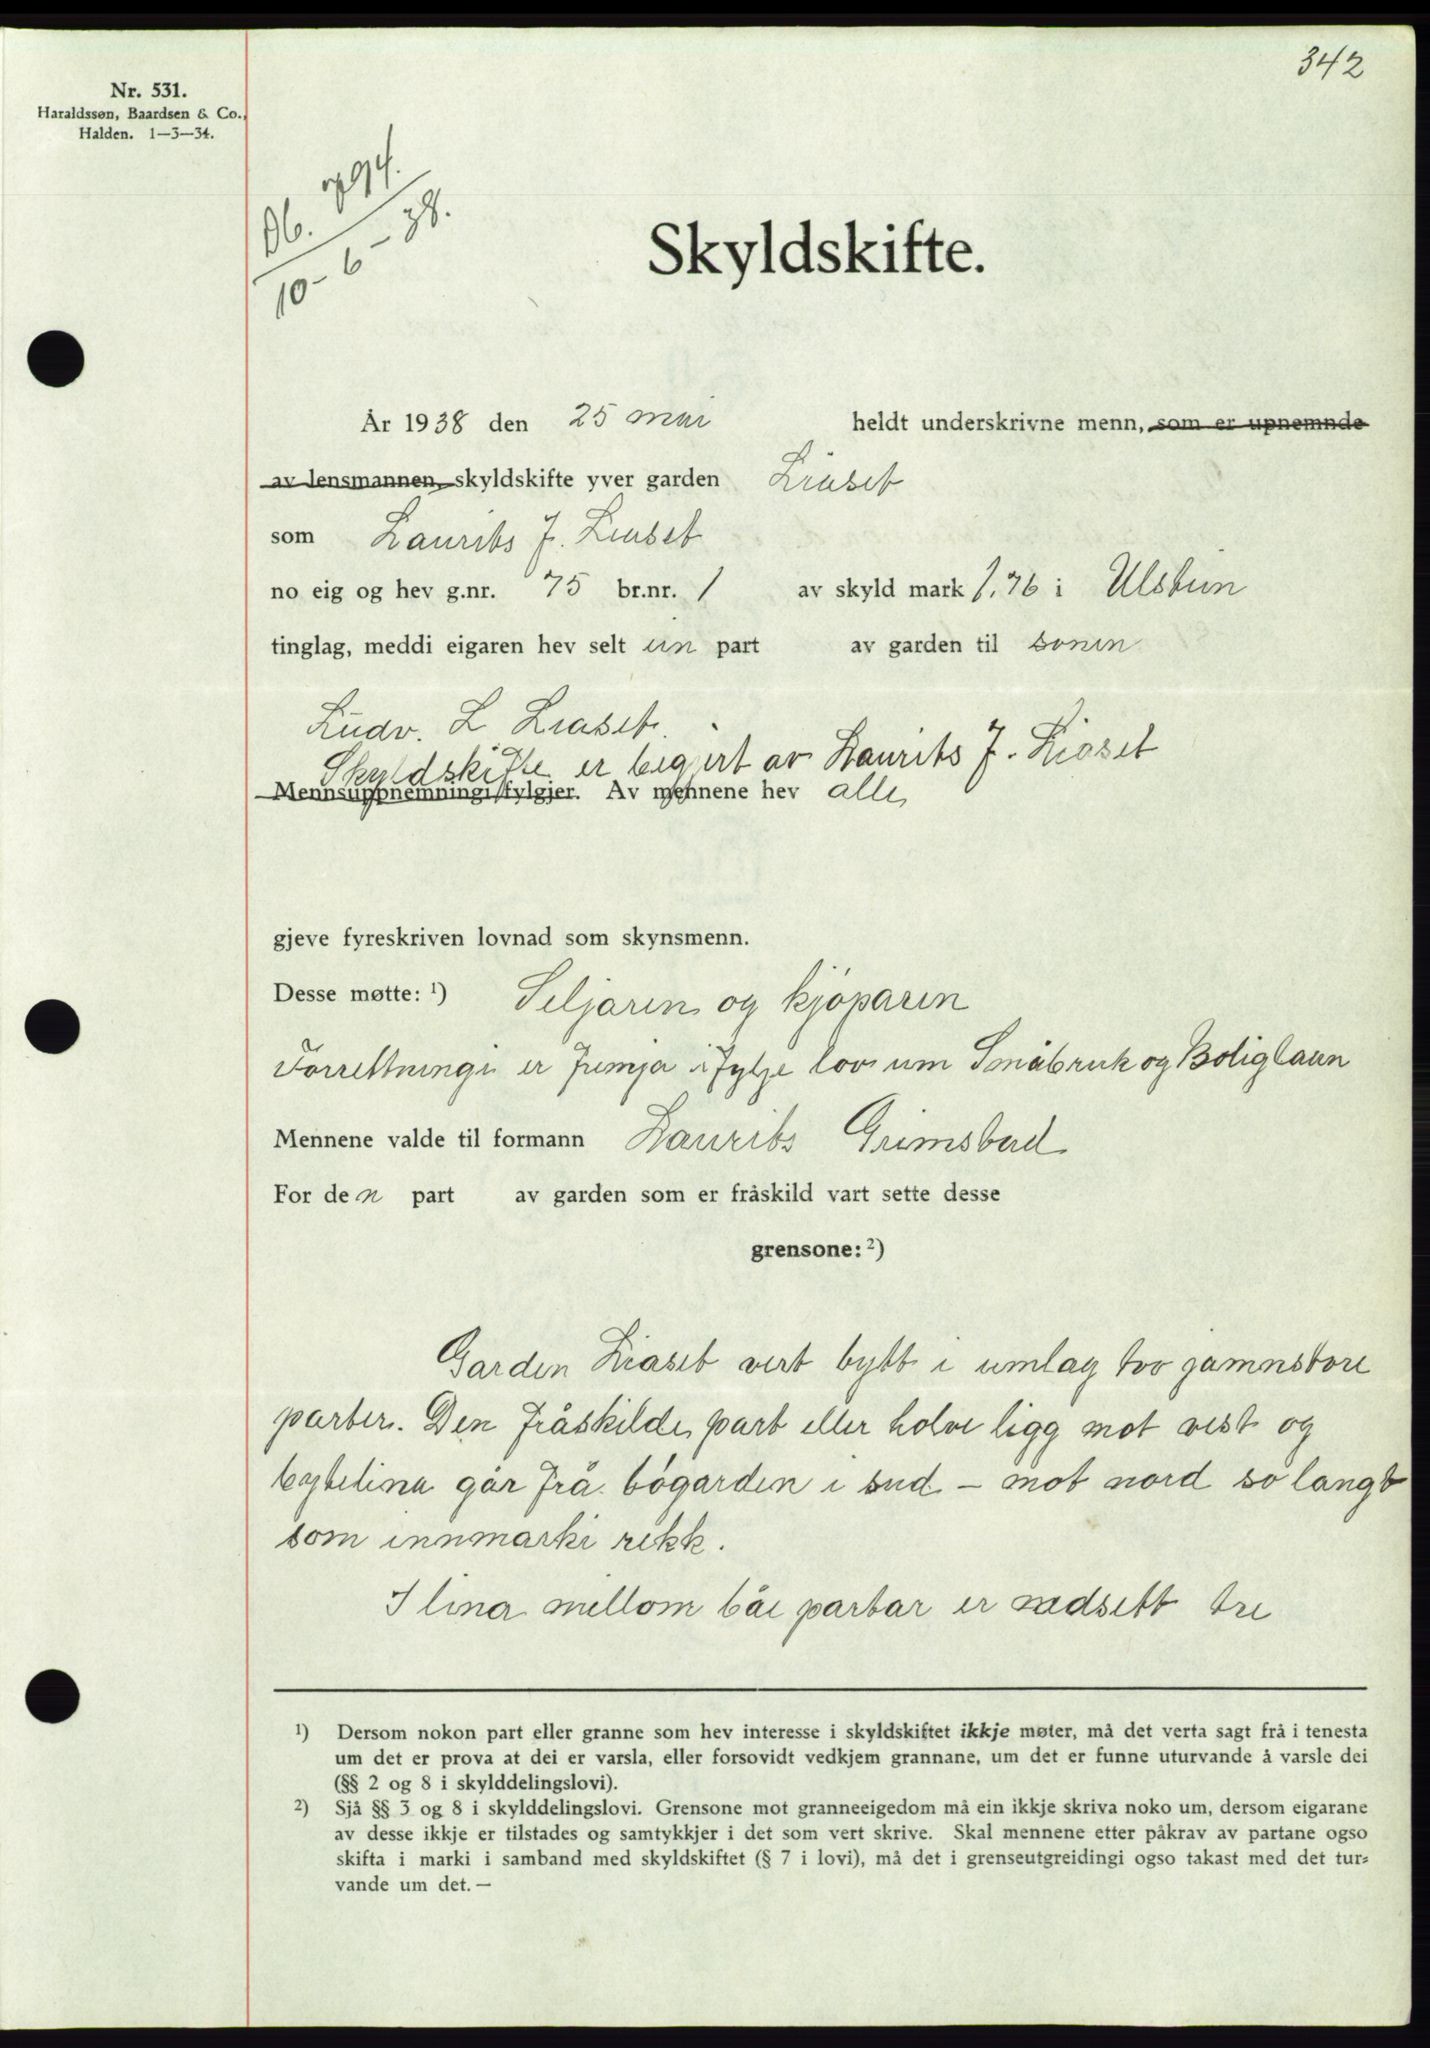 342
Nr. 531.
Haraldssøn, Baardsen & Co.,
Halden. 1—3—34.
Db. 794.
10-6-38.
Skyldskifte.
År 1938 den 25 mai heldt underskrivne menn, som er upnemnde
av lensmannen, skyldskifte yver garden Liaset
som Laurits J. Liaset
no eig og hev g.nr. 75 br.nr. 1 av skyld mark 1.76 i Ulstein
tinglag, meddi eigaren hev selt ein part av garden til sonen
Ludv. L Liaset.
Skyldskifte er begjert av Laurits J. Liaset
Mennsuppnemningi fylgjer. Av mennene hev alle
gjeve fyreskriven lovnad som skynsmenn.
Desse møtte: ¹) Seljaren og kjöparen
Forrettningi er fremja i fylje lov um Småbruk og Boliglaan
Mennene valde til formann Laurits Grimstad
For den part av garden som er fråskild vart sette desse
grensone: ²)
Garden Liaset vert bytt i umlag tvo jamnstore
parter. Den fråskilde part eller holve ligg mot vest og
bytelina går frå bögarden i sud - mot nord so langt
som innmarki rekk.
I lina mellom båe partar er nedsett tre
¹) Dersom nokon part eller granne som hev interesse i skyldskiftet ikkje møter, må det verta sagt frå i tenesta
um det er prova at dei er varsla, eller forsovidt vedkjem grannane, um det er funne uturvande å varsle dei
(§§ 2 og 8 i skylddelingslovi).
²) Sjå §§ 3 og 8 i skylddelingslovi. Grensone mot granneeigedom må ein ikkje skriva noko um, dersom eigarane
av desse ikkje er tilstades og samtykkjer i det som vert skrive. Skal mennene etter påkrav av partane ogso
skifta i marki i samband med skyldskiftet (§ 7 i lovi), må det i grenseutgreidingi ogso takast med det tur-
vande um det. —